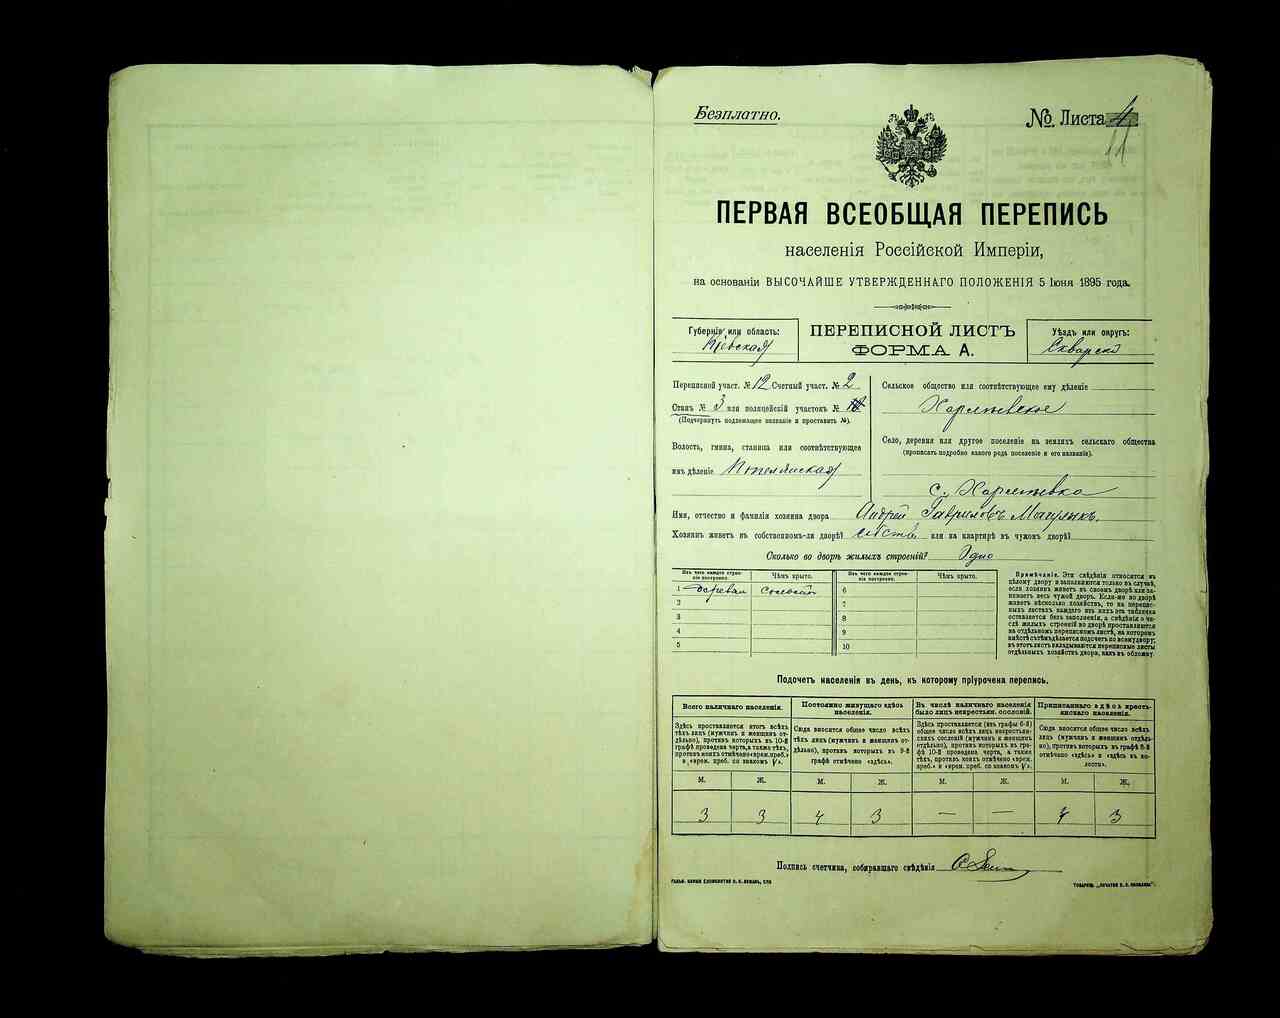 Безплатно.
№ Листа 4
11
ПЕРВАЯ ВСЕОБЩАЯ ПЕРЕПИСЬ
населенія Россійской Имперіи,
на основаніи ВЫСОЧАЙШЕ УТВЕРЖДЕННАГО ПОЛОЖЕНІЯ 5 Іюня 1895 года.
Губернія или область:
Кіевская
ПЕРЕПИСНОЙ ЛИСТЪ
ФОРМА А.
Уѣздъ или округъ:
Сквирскій
Переписной участ. № 12 Счетный участ. № 2
Станъ № 3 или полицейскій участокъ №
(Подчеркнуть подлежащее названіе и проставить №).
Волость, гмина, станица или соотвѣтствующее
имъ дѣленіе
Сельское общество или соотвѣтствующее ему дѣленіе
Харлѣевское
Село, деревня или другое поселеніе на земляхъ сельскаго общества
(прописать подробно какого рода поселеніе и его названіе).
с. Харлѣевка
Имя, отчество и фамилія хозяина двора Андрей Гавриловъ
Хозяинъ живетъ въ собственномъ-ли дворѣ? или на квартирѣ въ чужомъ дворѣ?
Сколько во дворѣ жилыхъ строеній? Одно
Изъ чего каждое строеніе построено. Чѣмъ крыто. Изъ чего каждое строеніе построено. Чѣмъ крыто.
1 дерева соломой 6
2 7
3 8
4 9
5 10
Примѣчаніе. Эти свѣдѣнія относятся къ
цѣлому двору и заполняются только въ случаѣ,
если хозяинъ живетъ въ своемъ дворѣ или за-
нимаетъ весь чужой дворъ. Если-же во дворѣ
живетъ нѣсколько хозяйствъ, то на перепис-
ныхъ листахъ каждаго изъ нихъ эта табличка
оставляется безъ заполненія, а свѣдѣнія о чи-
слѣ жилыхъ строеній во дворѣ проставляются
на отдѣльномъ переписномъ листѣ, на которомъ
вмѣстѣ съ тѣмъ дѣлается подсчетъ по всему двору;
въ этотъ листъ вкладываются переписные листы
отдѣльныхъ хозяйствъ двора, какъ въ обложку.
Подсчетъ населенія въ день, къ которому пріурочена перепись.
Всего наличнаго населенія.
Здѣсь проставляется итогъ всѣхъ
тѣхъ лицъ (мужчинъ и женщинъ от-
дѣльно), противъ которыхъ въ 10-й
графѣ проведена черта, а также тѣхъ,
противъ коихъ отмѣчено «врем. преб.»
и «врем. преб. со знакомъ V».
Постоянно живущаго здѣсь
населенія.
Сюда вносится общее число всѣхъ
тѣхъ лицъ (мужчинъ и женщинъ от-
дѣльно), противъ которыхъ въ 9-й
графѣ отмѣчено «здѣсь».
Въ числѣ наличнаго населенія
было лицъ некрестьян. сословій.
Здѣсь проставляется (изъ графы 6-й)
общее число всѣхъ лицъ некрестьян-
скихъ сословій (мужчинъ и женщинъ
отдѣльно), противъ которыхъ въ гра-
фѣ 10-й проведена черта, а также
тѣхъ, противъ коихъ отмѣчено «врем.
преб.» и «врем. преб. со знакомъ V».
Приписаннаго здѣсь кресть-
янскаго населенія.
Сюда вносится общее число всѣхъ
лицъ (мужчинъ и женщинъ отдѣль-
но), противъ которыхъ въ графѣ 8-й
отмѣчено «здѣсь» и «здѣсь въ во-
лости».
М. Ж. М. Ж. М. Ж. М. Ж.
3 3 4 3 — — 4 3
Подпись счетчика, собиравшаго свѣдѣнія